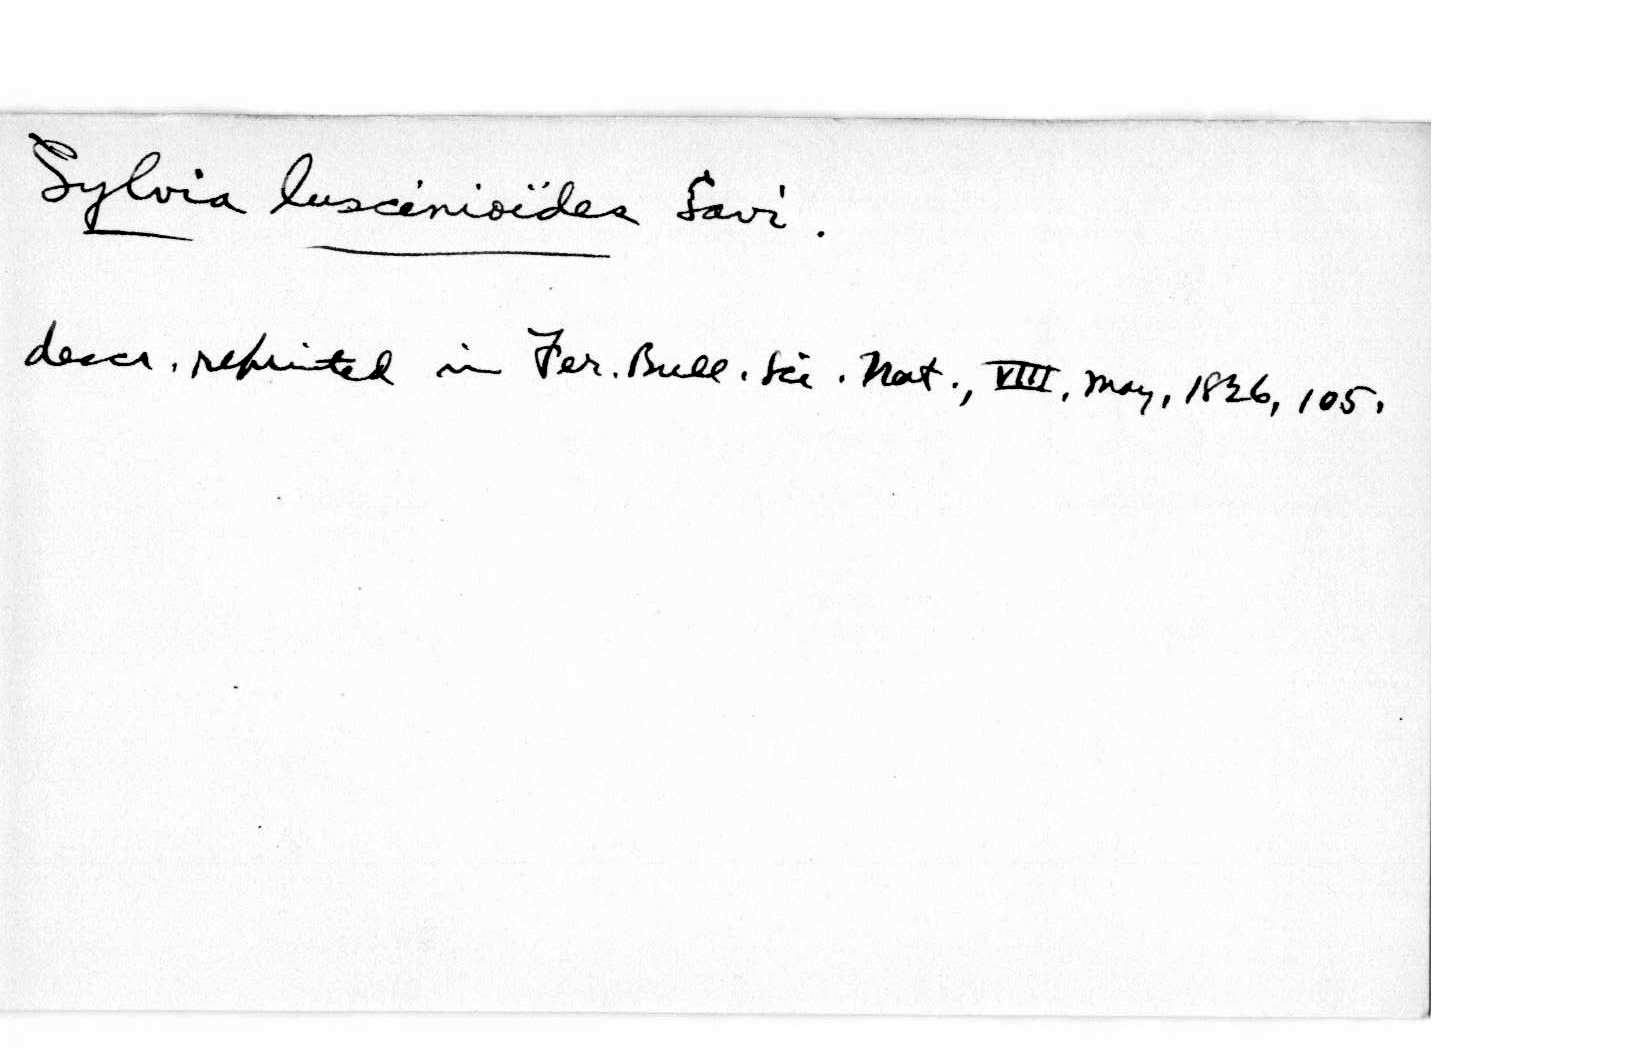 Sylvia luscinioïdes Savi.
descr. reprinted in Fer. Bull. Sci. Nat., VIII, May, 1826, 105.